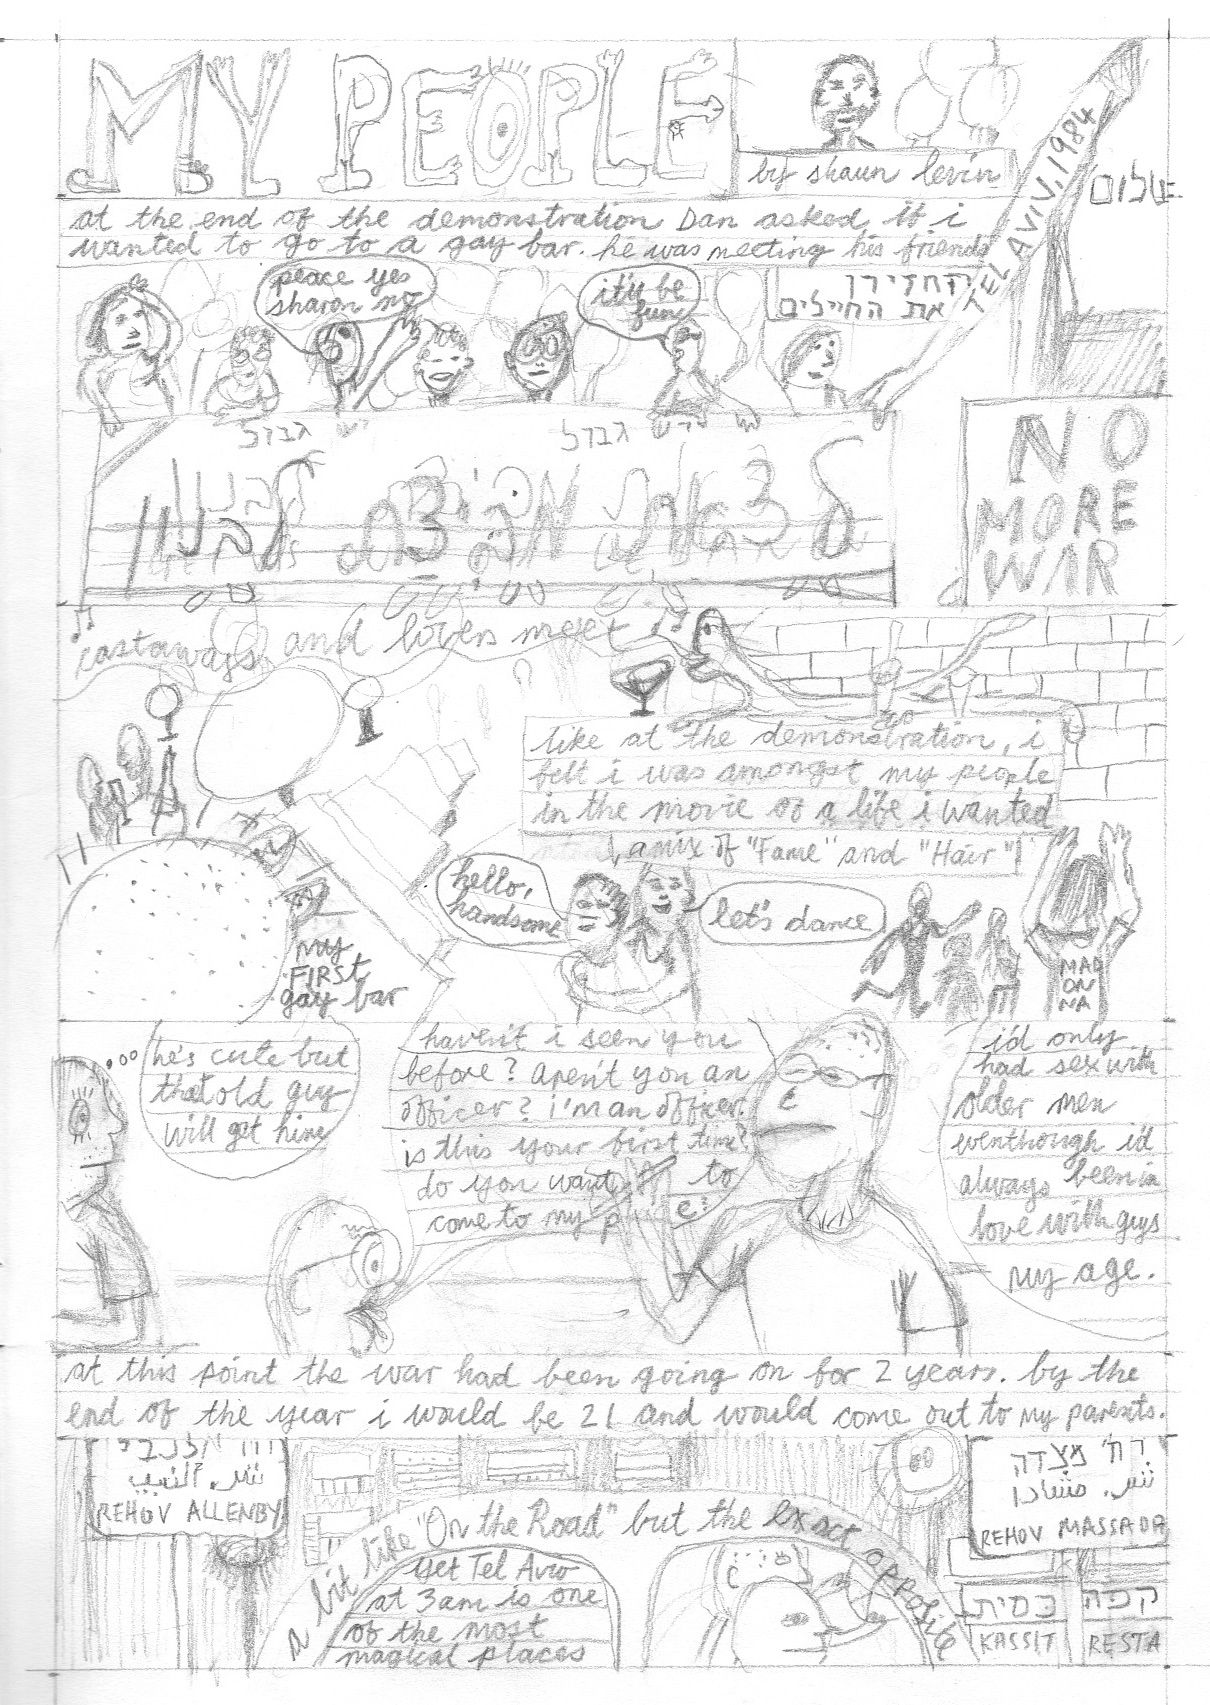 MY PEOPLE
by shaun levin
TEL AVIV, 1984
שלום
at the end of the demonstration Dan asked if i
wanted to go to a gay bar. he was meeting his friends
peace yes
sharon no
it'll be
fun
החזירו
את החיילים
גבול
גבול
לצאת
לבנון
NO
MORE
WAR
castaways and lovers meet
like at the demonstration, i
felt i was amongst my people
in the movie of a life i wanted
, a mix of "Fame" and "Hair"
hello,
handsome
let's dance
my
FIRST
gay bar
MAD
ON
NA
he's cute but
that old guy
will get him
haven't i seen you
before? aren't you an
officer? i'm an officer.
is this your first time?
do you want to
come to my p e?
i'd only
had sex with
older men
eventhough i'd
always been in
love with guys
my age.
at this point the war had been going on for 2 years. by the
end of the year i would be 21 and would come out to my parents.
REHOV ALLENBY
רח' מצדה
REHOV MASSADA
a bit like "On the Road" but the exact opposite
yet Tel Aviv
at 3am is one
of the most
magical places
כסית
KASSIT
קפה
RESTA